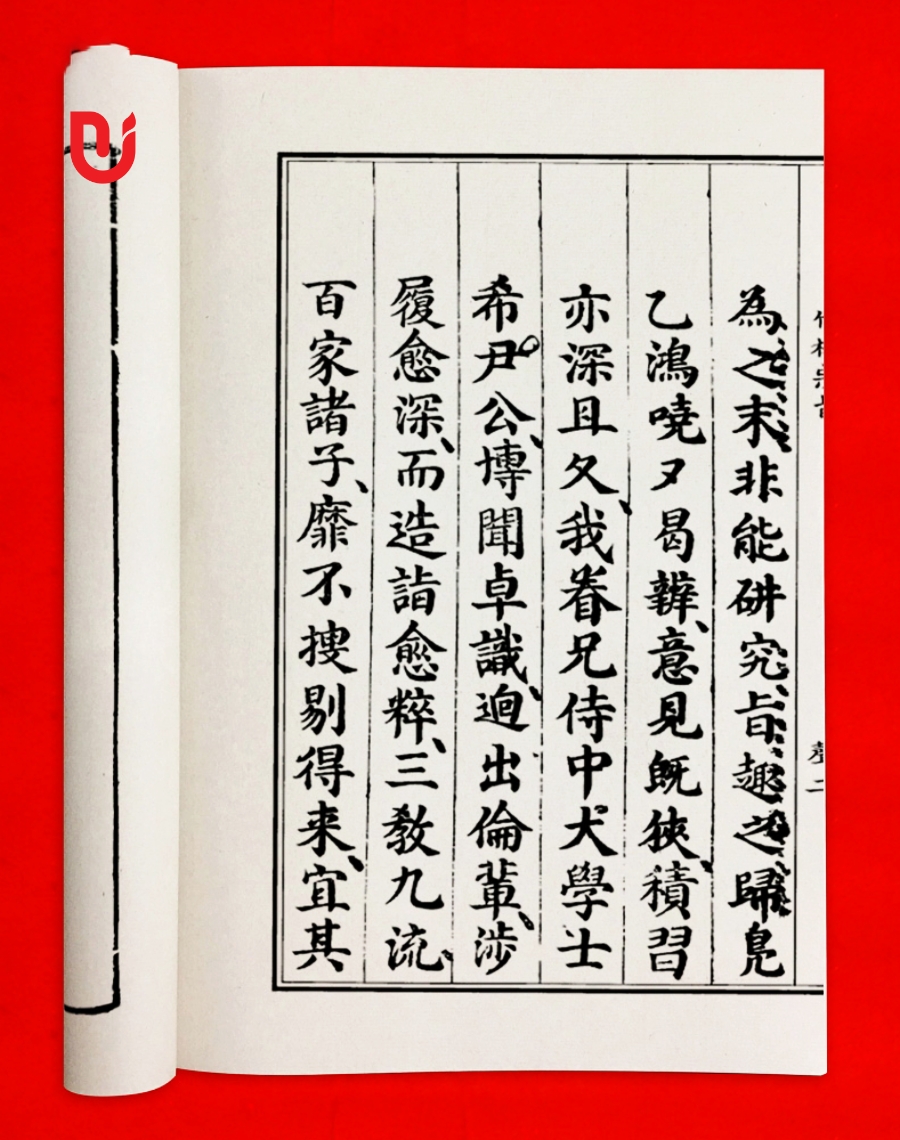 為之末非能硏究旨趣之歸鳬
乙鴻嘵夕曷辧意見既狹積習
亦深且久我眷兄侍中大學士
希尹公博聞卓識逈出倫輩涉
履愈深而造詣愈粹三教九流
百家諸子靡不搜剔得来宜其